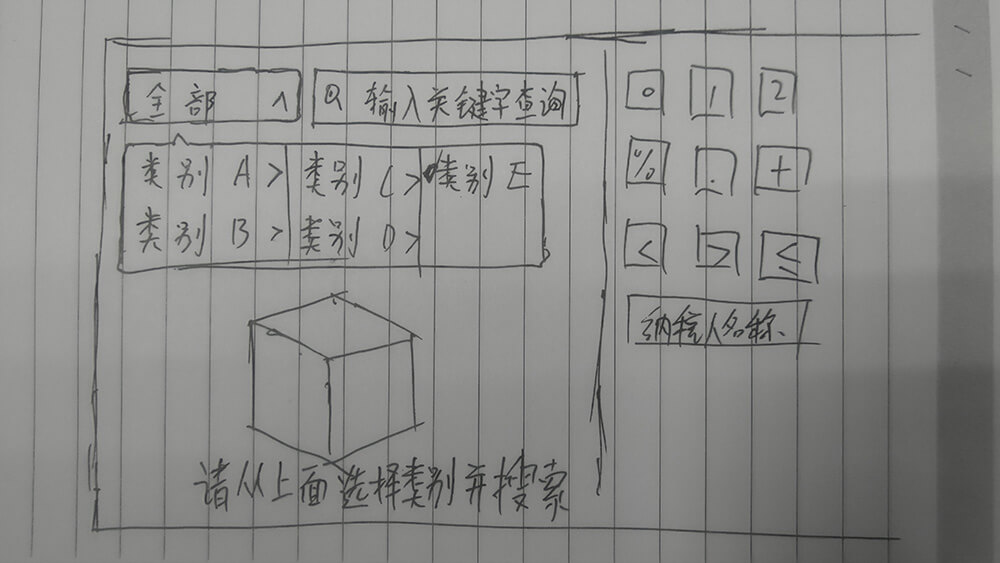 全部 ^
输入关键字查询
类别 A > 类别 C > 类别 E
类别 B > 类别 D >
请从上面选择类别并搜索
0 1 2
% . +
< > ≤
纳税人名称